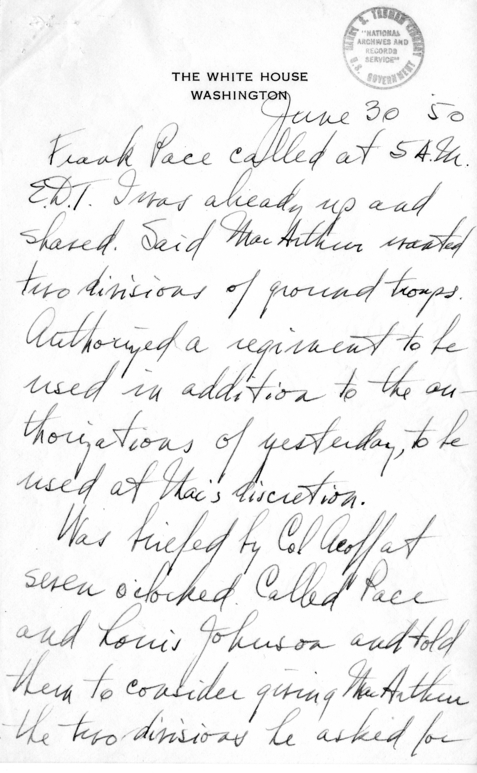 HARRY S. TRUMAN LIBRARY
"NATIONAL
ARCHIVES AND
RECORDS
SERVICE"
U.S. GOVERNMENT
THE WHITE HOUSE
WASHINGTON
June 30 '50
Frank Pace called at 5 A.M.
E.D.T. I was already up and
shaved. Said MacArthur wanted
two divisions of ground troops.
Authorized a regiment to be
used in addition to the au-
thorizations of yesterday, to be
used at Mac's discretion.
Was briefed by Col
at
seven o'clock. Called Pace
and Louis Johnson and told
them to consider giving MacArthur
the two divisions he asked for